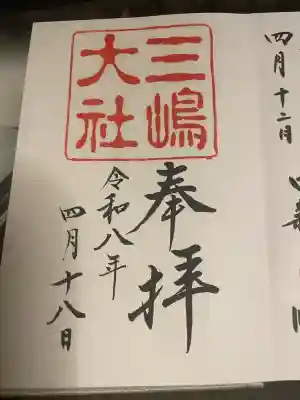 四月十二日
三嶋
大社
奉拝
令和八年
四月十八日